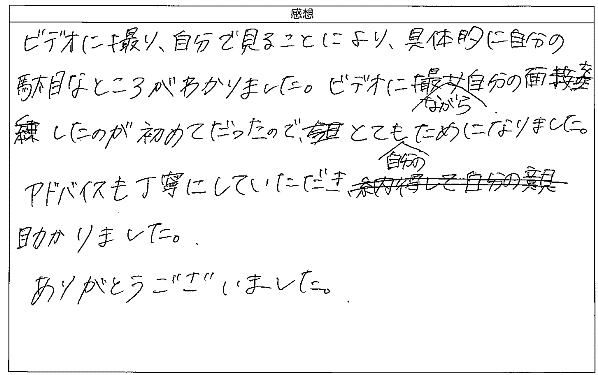 感想
ビデオに撮り、自分で見ることにより、具体的に自分の
駄目なところがわかりました。ビデオに撮りながら自分の面接
練したのが初めてだったので、とてもためになりました。
アドバイスも丁寧にしていただき、自分の
助かりました。
ありがとうございました。